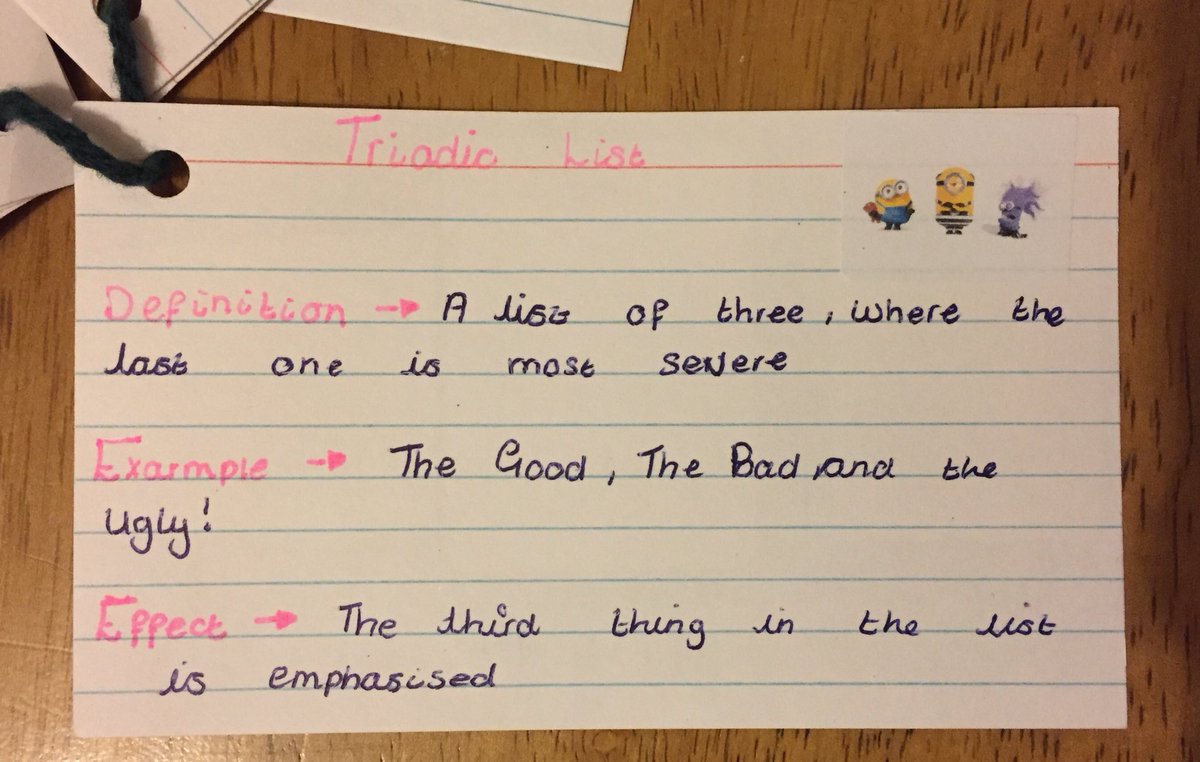 Triadic List
Definition → A list of three, where the
last one is most severe
Example → The Good, The Bad, and the
Ugly!
Effect → The third thing in the list
is emphasised